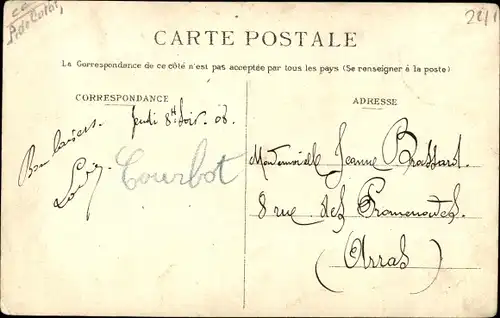 CARTE POSTALE
La Correspondance de ce côté n'est pas acceptée par tous les pays (Se renseigner à la poste)
CORRESPONDANCE
Jeudi 8H Soir. 08.
Bons baisers.
Courbot
ADRESSE
Mademoiselle Jeanne Brassart.
8 rue des Promenades.
(Arras)